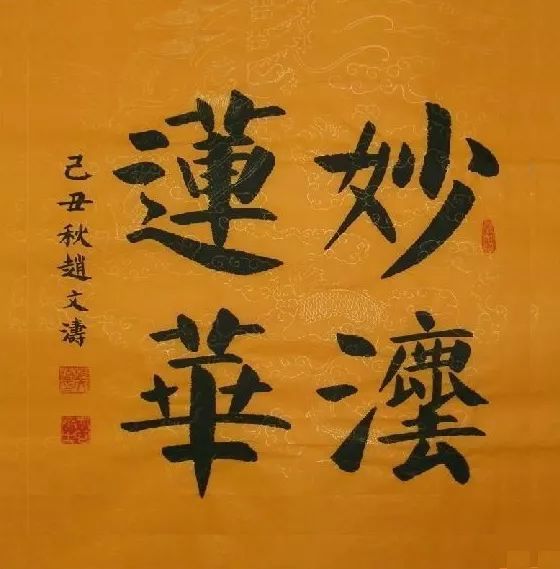 妙灋
蓮華
己丑秋趙文濤